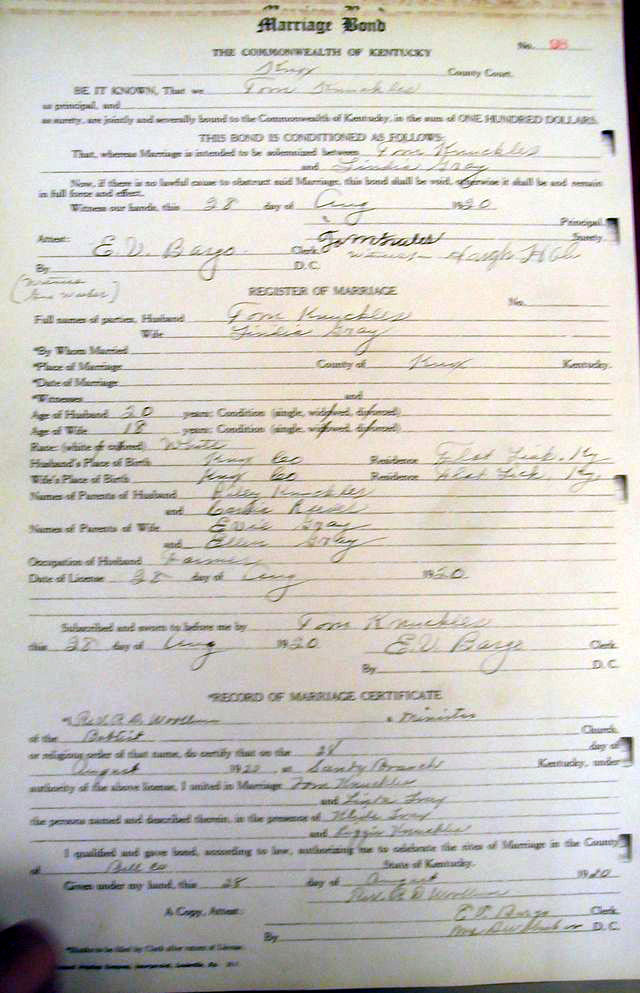 Marriage Bond
THE COMMONWEALTH OF KENTUCKY
No. 98
Knox County Court.
BE IT KNOWN, That we Tom Knuckles
as principal, and
as surety, are jointly and severally bound to the Commonwealth of Kentucky, in the sum of ONE HUNDRED DOLLARS.
THIS BOND IS CONDITIONED AS FOLLOWS:
That, whereas Marriage is intended to be solemnized between Tom Knuckles
and Gray
Now, if there is no lawful cause to obstruct said Marriage, this bond shall be void, otherwise it shall be and remain
in full force and effect.
Witness our hands, this 28 day of Aug 1920
Principal.
Attest: E. V. Bargo Clerk. Surety.
By D. C. Witness
REGISTER OF MARRIAGE
No.
Full names of parties, Husband Tom Knuckles
Wife Gray
*By Whom Married
*Place of Marriage County of Knox Kentucky.
*Date of Marriage
*Witnesses and
Age of Husband 20 years; Condition (single, widowed, divorced)
Age of Wife 18 years; Condition (single, widowed, divorced)
Race (white or colored) White
Husband's Place of Birth Knox Co Residence Flat Lick, Ky
Wife's Place of Birth Knox Co Residence Flat Lick, Ky
Names of Parents of Husband Riley Knuckles
and
Names of Parents of Wife Gray
and Ellen Gray
Occupation of Husband Farmer
Date of License 28 day of Aug 1920
Subscribed and sworn to before me by Tom Knuckles
this 28 day of Aug 1920 E. V. Bargo Clerk
By D. C.
*RECORD OF MARRIAGE CERTIFICATE
I, Rev. a Minister
of the Baptist Church,
or religious order of that name, do certify that on the 28 day of
August 1920, at Sandy Branch Kentucky, under
authority of the above license, I united in Marriage Tom Knuckles
and Gray
the persons named and described therein, in the presence of Gray
and Knuckles
I qualified and gave bond, according to law, authorizing me to celebrate the rites of Marriage in the County
of Bell Co State of Kentucky.
Given under my hand, this 28 day of August 1920
Rev.
A Copy, Attest: E. V. Bargo Clerk
By D. C.
*Blanks to be filed by Clerk after return of License.